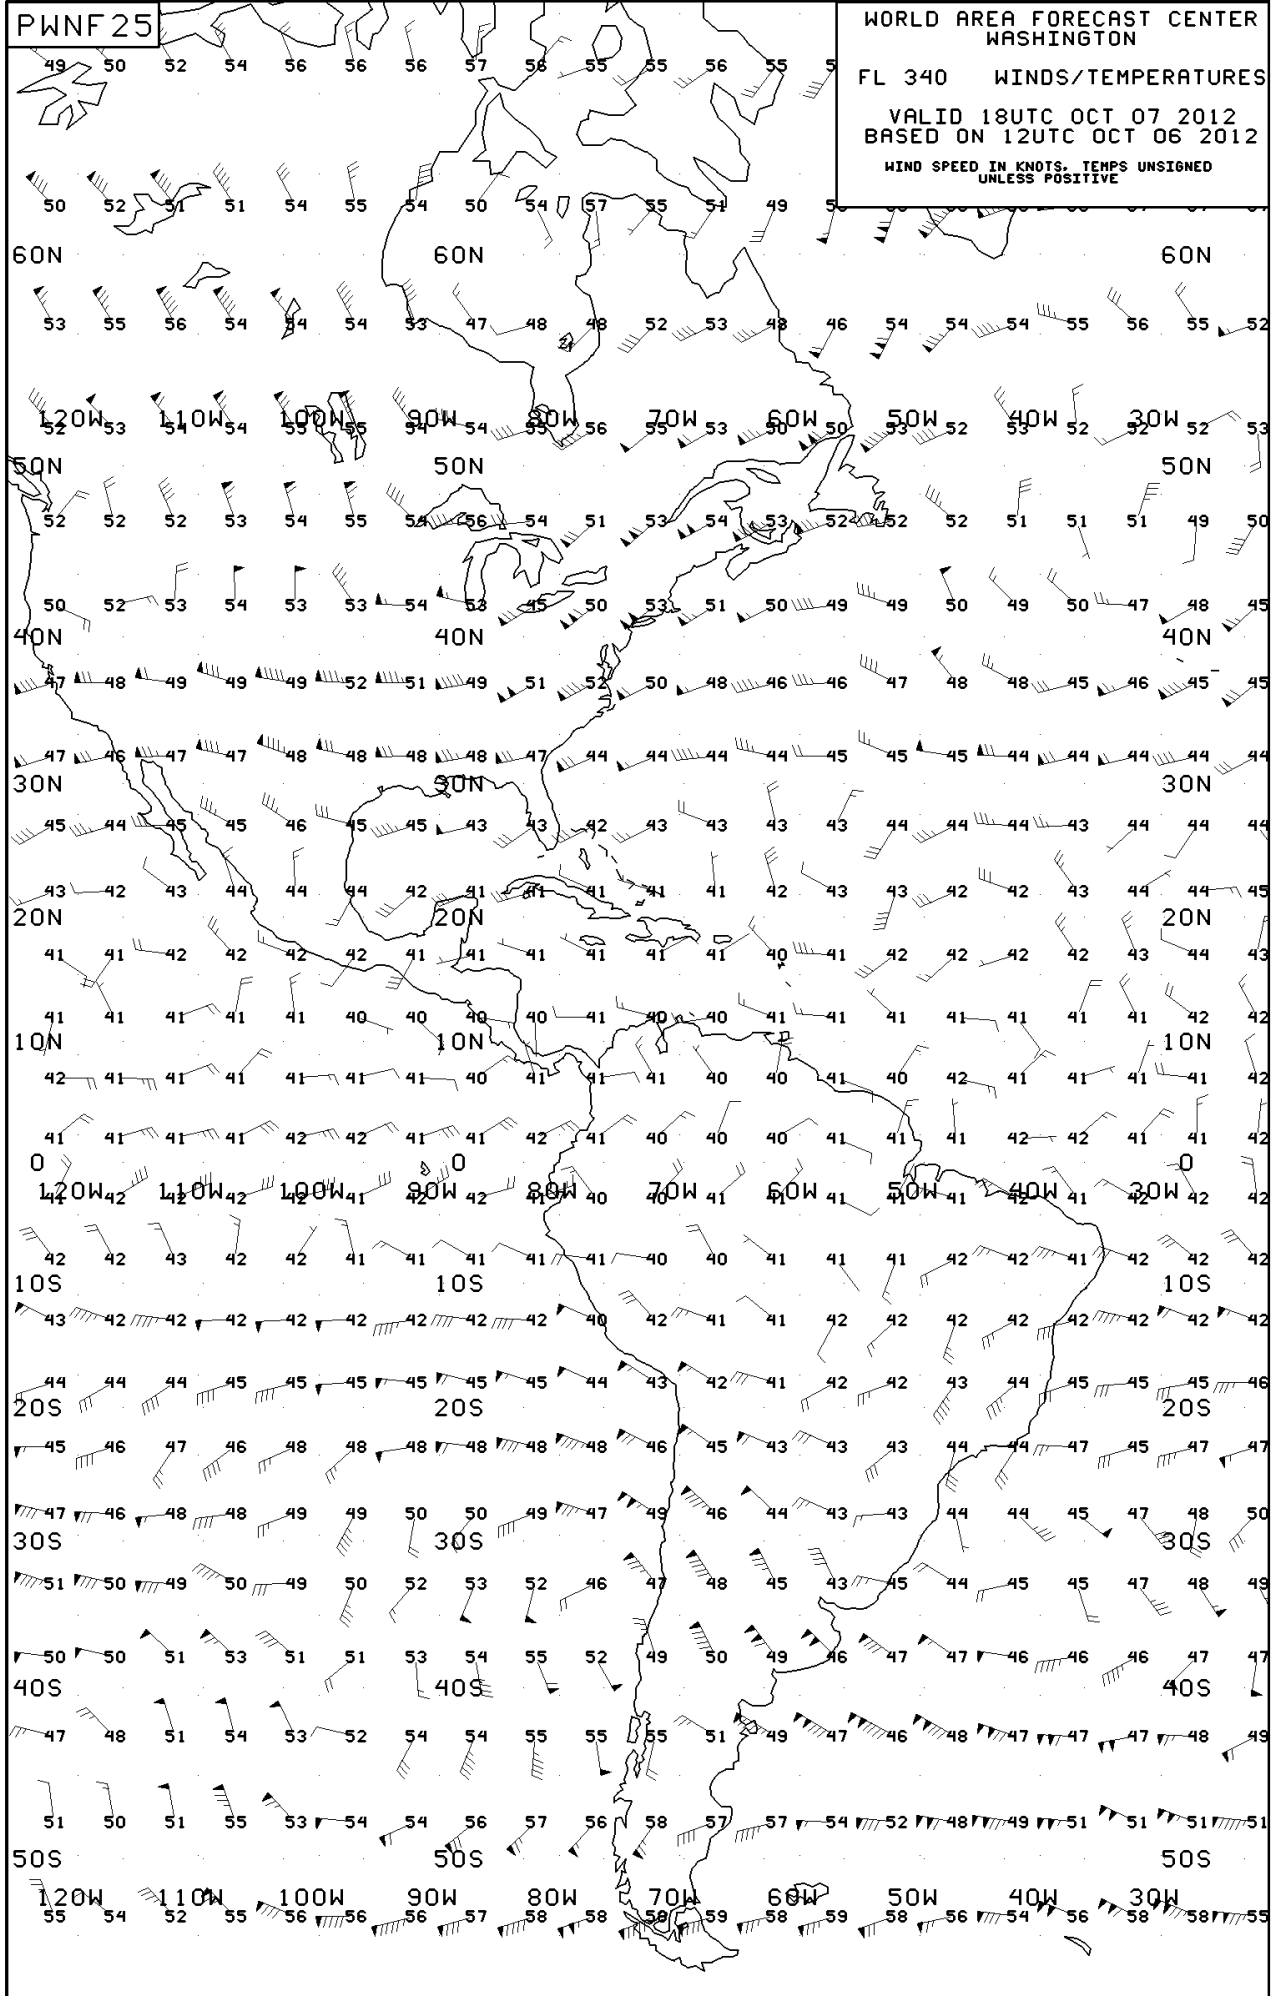 PWNF25
WORLD AREA FORECAST CENTER
WASHINGTON
FL 340 WINDS/TEMPERATURES
VALID 18UTC OCT 07 2012
BASED ON 12UTC OCT 06 2012
WIND SPEED IN KNOTS, TEMPS UNSIGNED
UNLESS POSITIVE
49 50 52 54 56 56 56 57 56 55 55 56 55
50 52 51 51 54 55 54 50 54 57 55 51 49
60N 60N 60N
53 55 56 54 54 54 53 47 48 48 52 53 48 46 54 54 54 55 56 55 52
120W 110W 100W 90W 80W 70W 60W 50W 40W 30W
52 53 54 54 55 55 54 54 55 56 55 53 50 50 53 52 53 52 52 52 53
50N 50N 50N
52 52 52 53 54 55 54 56 54 51 53 54 53 52 52 52 51 51 51 49 50
50 52 53 54 53 53 54 53 45 50 53 51 50 49 49 50 49 50 47 48 45
40N 40N 40N
47 48 49 49 49 52 51 49 51 52 50 48 46 46 47 48 48 45 46 45 45
47 46 47 47 48 48 48 48 47 44 44 44 44 45 45 45 44 44 44 44 44
30N 30N 30N
45 44 45 45 46 45 45 43 43 42 43 43 43 43 44 44 44 43 44 44 44
43 42 43 44 44 44 42 41 41 41 41 41 42 43 43 42 42 43 44 44 45
20N 20N 20N
41 41 42 42 42 42 41 41 41 41 41 41 40 41 42 42 42 42 43 44 43
41 41 41 41 41 40 40 40 40 41 40 40 41 41 41 41 41 41 41 42 42
10N 10N 10N
42 41 41 41 41 41 41 40 41 41 41 40 40 41 40 42 41 41 41 41 42
41 41 41 41 42 42 41 41 42 41 40 40 40 41 41 41 42 42 41 41 42
0 0 0
120W 110W 100W 90W 80W 70W 60W 50W 40W 30W
41 42 42 42 42 41 42 42 41 40 40 41 41 41 41 41 42 41 42 42 42
42 42 43 42 42 41 41 41 41 41 40 40 41 41 41 42 42 41 42 42 42
10S 10S 10S
43 42 42 42 42 42 42 42 42 40 42 41 41 42 42 42 42 42 42 42 42
44 44 44 45 45 45 45 45 45 44 43 42 41 42 42 43 44 45 45 45 46
20S 20S 20S
45 46 47 46 48 48 48 48 48 48 46 45 43 43 43 44 44 47 45 47 47
47 46 48 48 49 49 50 50 49 47 49 46 44 43 43 44 44 45 47 48 50
30S 30S 30S
51 50 49 50 49 50 52 53 52 46 47 48 45 43 45 44 45 45 47 48 49
50 50 51 53 51 51 53 54 55 52 49 50 49 46 47 47 46 46 46 47 47
40S 40S 40S
47 48 51 54 53 52 54 54 55 55 55 51 49 47 46 48 47 47 47 48 49
51 50 51 55 53 54 54 56 57 56 58 57 57 54 52 48 49 51 51 51 51
50S 50S 50S
120W 110W 100W 90W 80W 70W 60W 50W 40W 30W
55 54 52 55 56 56 56 57 58 58 58 59 58 59 58 56 54 56 58 58 55